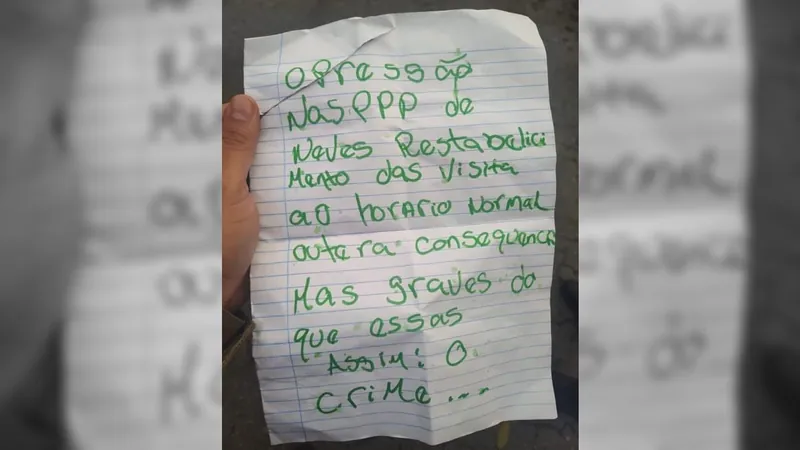 OPressão
Nas PPP de
Neves Restabelici
Mento das Visita
ao horArio Normal
outera consequenci
Mas graves do
que essas
Assim: O
criMe...